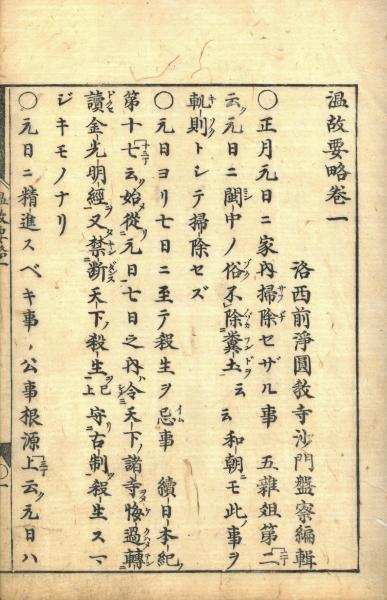 温故要略卷一
洛西前淨圓教寺沙門盤察編輯
○正月元日ニ家內掃除セザル事 五雜俎第二
云元日ニ閩中ノ俗不除糞土云云和朝ニモ此ノ事ヲ
軌則トシテ掃除セズ
○元日ヨリ七日ニ至テ殺生ヲ忌事 續日本紀
第十七云始從元日七日之內令天下諸寺悔過轉
讀金光明經又禁斷天下殺生已上守古制殺生スマ
ジキモノナリ
○元日ニ精進スベキ事 公事根源上云元日ハ